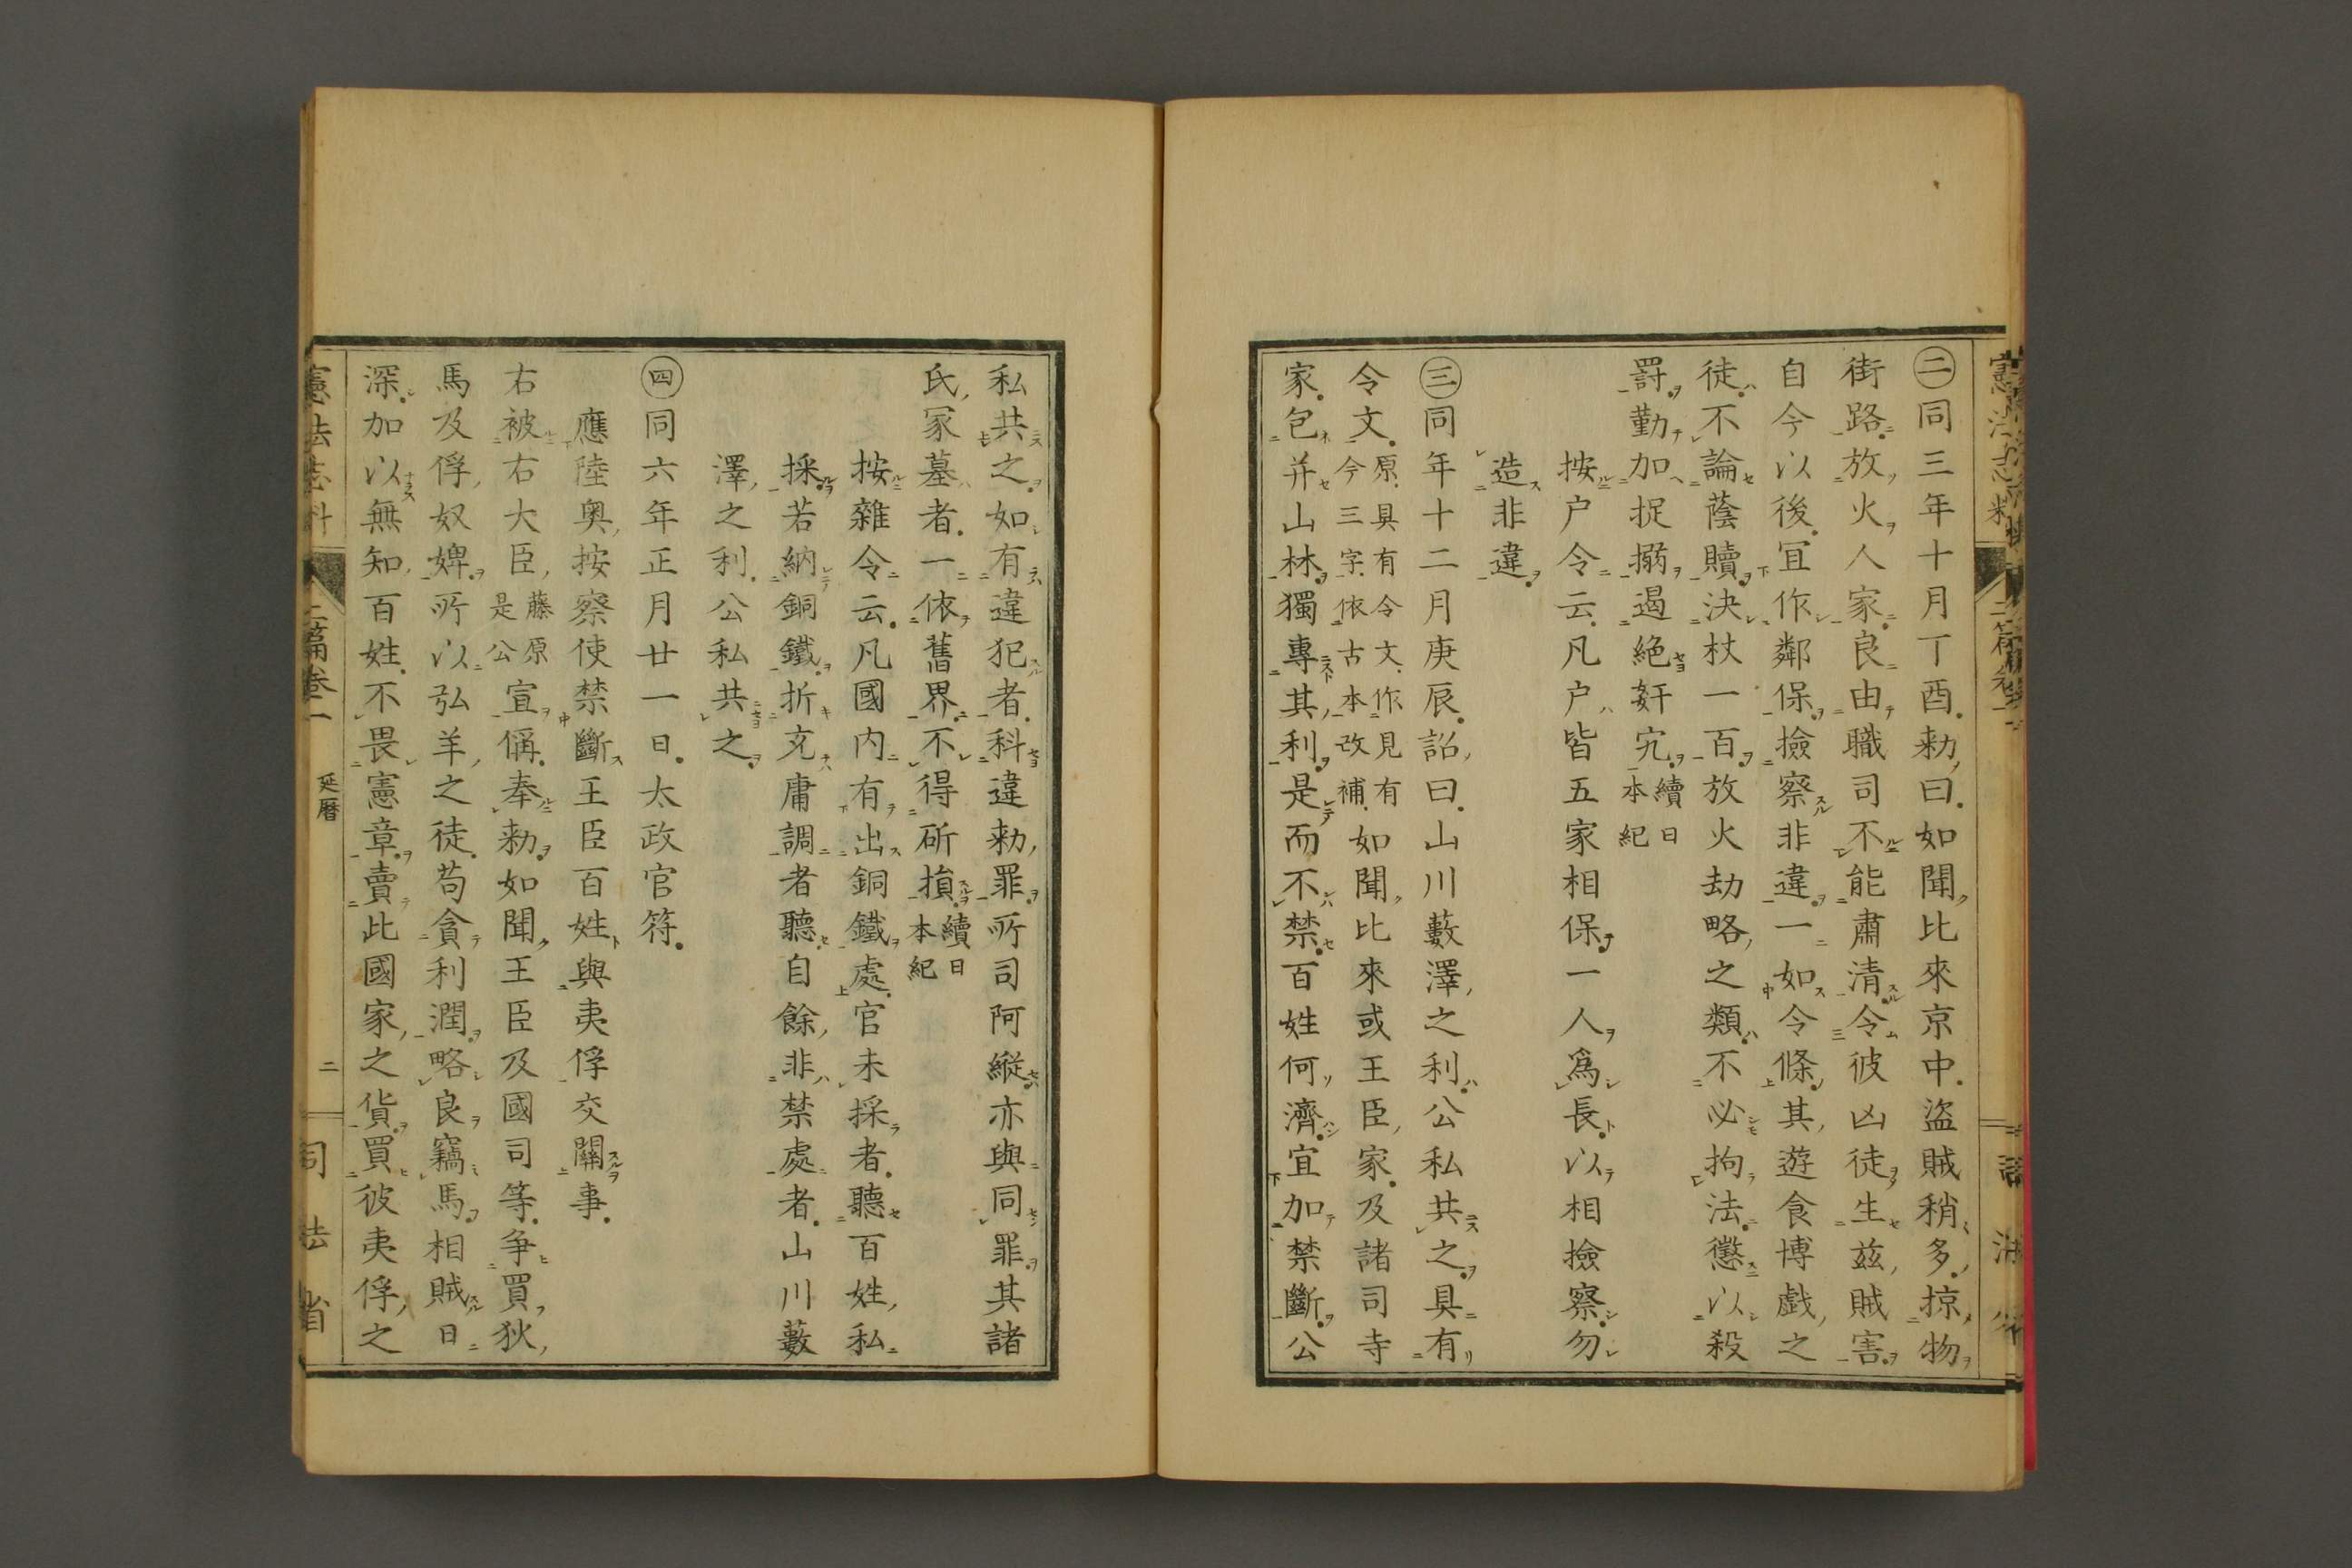 ㊁同三年十月丁酉勅曰如聞比來京中盜賊稍多掠物
街路放火人家良由職司不能肅清令彼凶徒生茲賊害
自今以後冝作鄰保撿察非違一如令條其遊食博戯之
徒不論蔭贖決杖一百放火劫略之類不必拘法懲以殺
罸勤加捉搦遏絕奸宄續日本紀
按户令云凡户皆五家相保一人爲長以相撿察勿
造非違
㊂同年十二月庚辰詔曰山川藪澤之利公私共之具有
令文原具有令文作見有令三字依古本改補如聞比來或王臣家及諸司寺
家包并山林獨專其利是而不禁百姓何濟宜加禁斷公
私共之如有違犯者科違勅罪所司阿縱亦與同罪其諸
氏冢墓者一依舊界不得斫損續日本紀
按雜令云凡國内有出銅鐵處官未採者聽百姓私
採若納銅鐵折充庸調者聽自餘非禁處者山川藪
澤之利公私共之
㊃同六年正月廿一日太政官符
應陸奧按察使禁斷王臣百姓與夷俘交關事
右被右大臣藤原是公宣偁奉勅如聞王臣及國司等争買狄
馬及俘奴婢所以弘羊之徒苟貪利潤略良竊馬相賊日
深加以無知百姓不畏憲章賣此國家之貨買彼夷俘之
憲法志料
二篇卷一
延曆
二
司法省